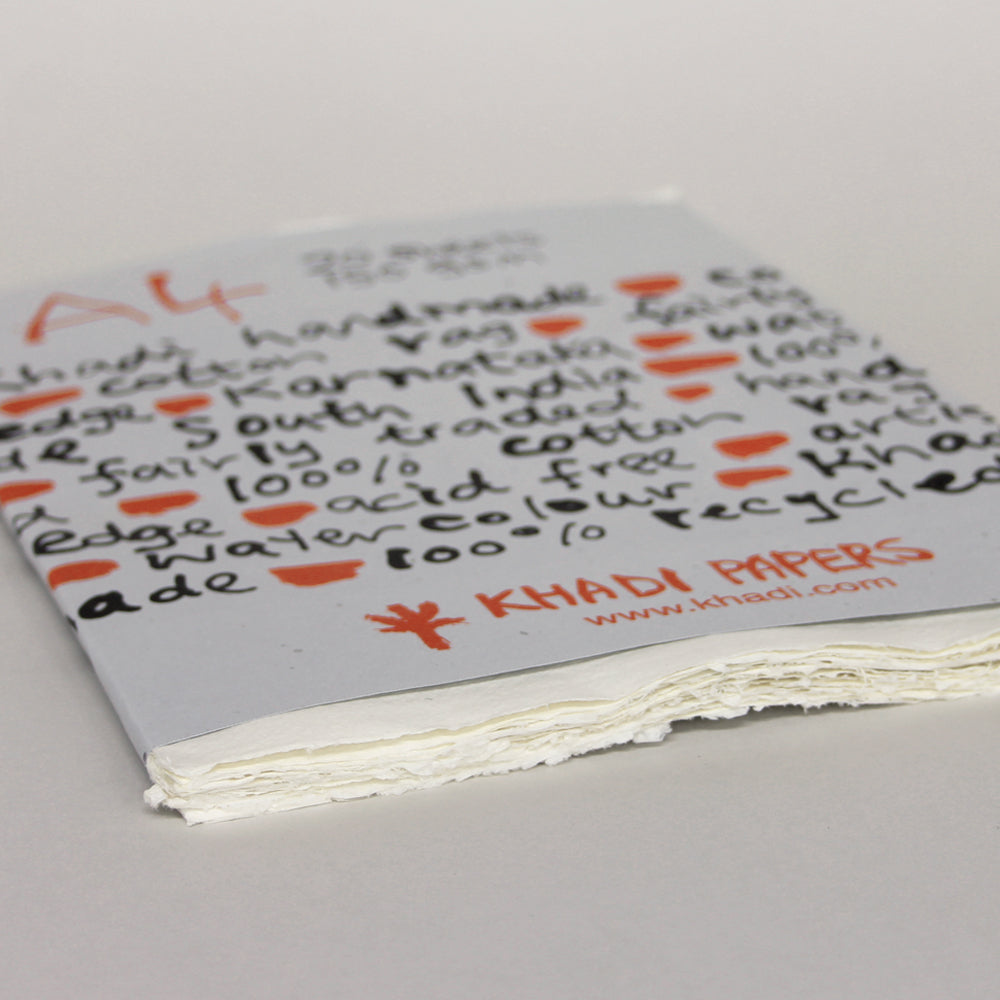 A4 20 sheets
150 gsm
khadi handmade
cotton rag fairly
edge Karnataka wate
de South India 100%
fairly traded hand
x 100% cotton rag
edge acid free artis
watercolour khad
ade 100% recycled
KHADI PAPERS
www.khadi.com